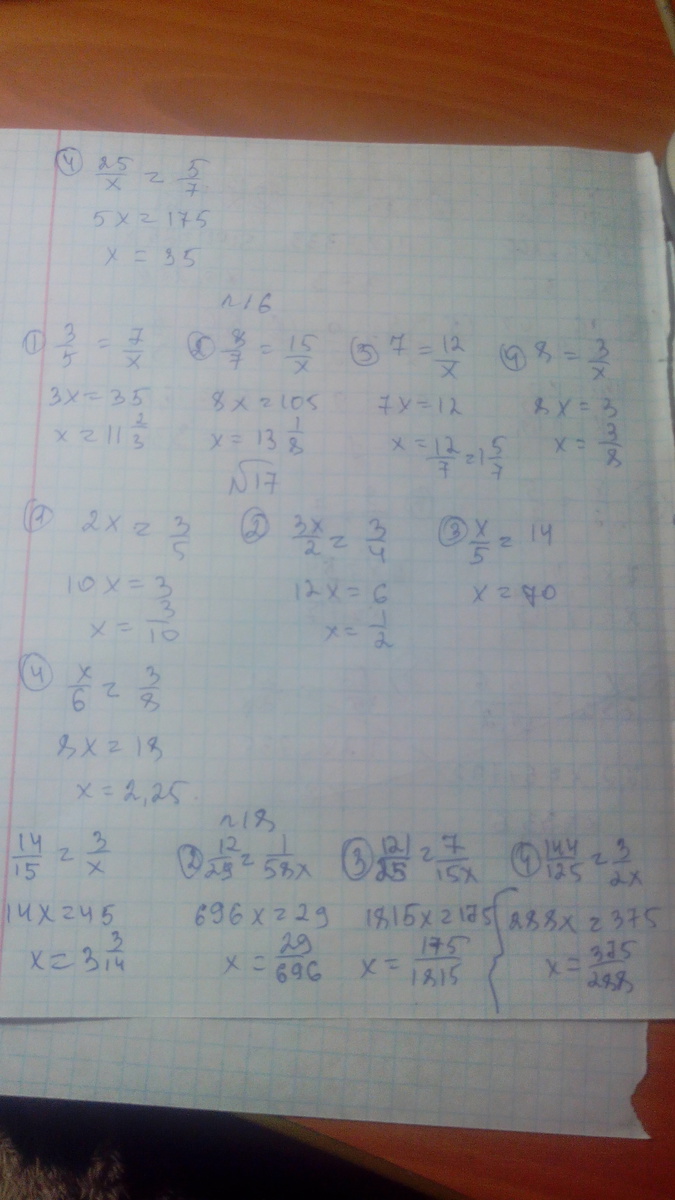 ④ 25/x = 5/7
5x = 175
x = 35
№16
① 3/5 = 7/x ② 8/7 = 15/x ③ 7 = 12/x ④ 8 = 3/x
3x = 35 8x = 105 7x = 12 8x = 3
x = 11 2/3 x = 13 1/8 x = 12/7 = 1 5/7 x = 3/8
№17
① 2x = 3/5 ② 3x/2 = 3/4 ③ x/5 = 14
10x = 3 12x = 6 x = 70
x = 3/10 x = 1/2
④ x/6 = 3/8
8x = 18
x = 2,25.
№18
14/15 = 3/x ② 12/29 = 1/58x ③ 121/25 = 7/15x ④ 144/125 = 3/2x
14x = 45 696x = 29 1815x = 175 288x = 375
x = 3 3/14 x = 29/696 x = 175/1815 x = 375/288